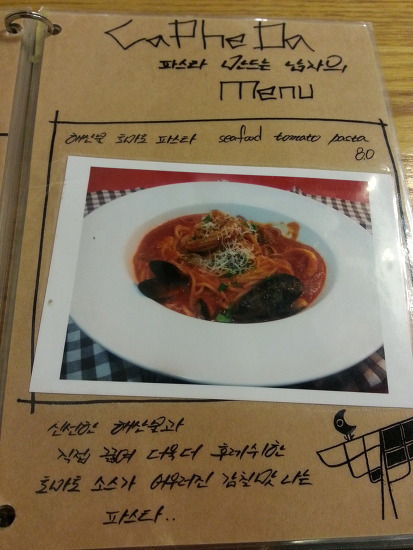 CaPhe Da
파스타 만드는 남자의,
Menu
해산물 토마토 파스타 seafood tomato pasta
8.0
신선한 해산물과
직접 끓여 더욱더 후레쉬한
토마토 소스가 어우러진 감칠맛 나는
파스타..